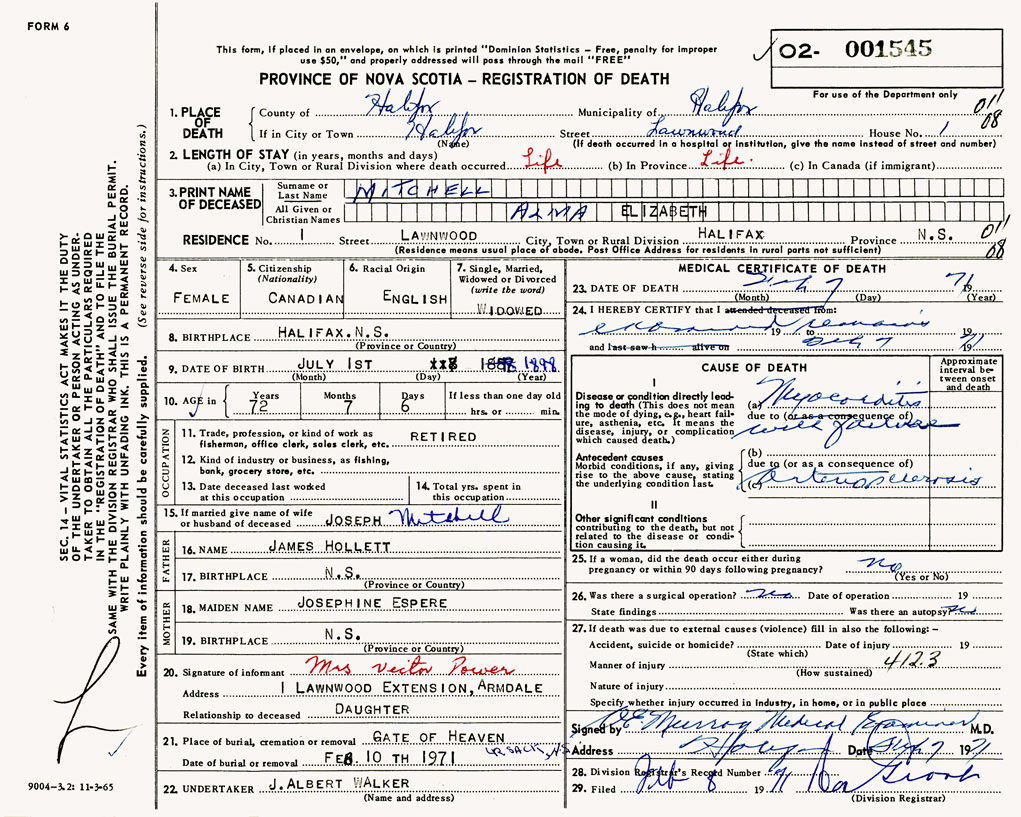 FORM 6
This form, if placed in an envelope, on which is printed "Dominion Statistics – Free, penalty for improper
use $50," and properly addressed will pass through the mail "FREE"
PROVINCE OF NOVA SCOTIA – REGISTRATION OF DEATH
02- 001545
For use of the Department only
011
08
1. PLACE OF DEATH
County of Halifax Municipality of Halifax
If in City or Town Halifax Street Lawnwood House No. 1
(Name) (If death occurred in a hospital or institution, give the name instead of street and number)
2. LENGTH OF STAY (in years, months and days)
(a) In City, Town or Rural Division where death occurred Life (b) In Province Life. (c) In Canada (if immigrant)
3. PRINT NAME OF DECEASED
Surname or Last Name MITCHELL
All Given or Christian Names ALMA ELIZABETH
RESIDENCE No. 1 Street LAWNWOOD City, Town or Rural Division HALIFAX Province N.S.
(Residence means usual place of abode. Post Office Address for residents in rural parts not sufficient)
011
08
4. Sex
FEMALE
5. Citizenship (Nationality)
CANADIAN
6. Racial Origin
ENGLISH
7. Single, Married, Widowed or Divorced (write the word)
WIDOWED
8. BIRTHPLACE HALIFAX.N.S.
(Province or Country)
9. DATE OF BIRTH JULY 1ST 1898
(Month) (Day) (Year)
10. AGE in Years Months Days If less than one day old
72 7 6 hrs. or min.
OCCUPATION
11. Trade, profession, or kind of work as fisherman, office clerk, sales clerk, etc. RETIRED
12. Kind of industry or business, as fishing, bank, grocery store, etc.
13. Date deceased last worked at this occupation
14. Total yrs. spent in this occupation
15. If married give name of wife or husband of deceased JOSEPH Mitchell
FATHER
16. NAME JAMES HOLLETT
17. BIRTHPLACE N.S.
(Province or Country)
MOTHER
18. MAIDEN NAME JOSEPHINE ESPERE
19. BIRTHPLACE N.S.
(Province or Country)
20. Signature of informant Mrs Victor Power
Address 1 LAWNWOOD EXTENSION, ARMDALE
Relationship to deceased DAUGHTER
21. Place of burial, cremation or removal GATE OF HEAVEN
SACK, N.S.
Date of burial or removal FEB 10 TH 1971
22. UNDERTAKER J.ALBERT WALKER
(Name and address)
MEDICAL CERTIFICATE OF DEATH
23. DATE OF DEATH 7 1971
(Month) (Day) (Year)
24. I HEREBY CERTIFY that I attended deceased from:
examined remains 19 to 19
and last saw h alive on 7 1971
CAUSE OF DEATH
Approximate interval between onset and death
I
Disease or condition directly leading to death (This does not mean the mode of dying, e.g., heart failure, asthenia, etc. It means the disease, injury, or complication which caused death.)
(a) Myocarditis
due to (or as a consequence of)
with failure
Antecedent causes
Morbid conditions, if any, giving rise to the above cause, stating the underlying condition last.
(b)
due to (or as a consequence of)
(c) Arteriosclerosis
II
Other significant conditions
contributing to the death, but not related to the disease or condition causing it.
25. If a woman, did the death occur either during pregnancy or within 90 days following pregnancy? no
(Yes or No)
26. Was there a surgical operation? no Date of operation 19
State findings Was there an autopsy? no
27. If death was due to external causes (violence) fill in also the following: –
Accident, suicide or homicide? Date of injury 19
(State which)
Manner of injury 412.3
(How sustained)
Nature of injury
Specify whether injury occurred in industry, in home, or in public place
Signed by Murray Medical Examiner M.D.
Address Date 7 1971
28. Division Registrar's Record Number
29. Filed Feb 8 1971
(Division Registrar)
SEC. 14 – VITAL STATISTICS ACT MAKES IT THE DUTY
OF THE UNDERTAKER OR PERSON ACTING AS UNDER-
TAKER TO OBTAIN ALL THE PARTICULARS REQUIRED
IN THE "REGISTRATION OF DEATH" AND TO FILE THE
SAME WITH THE DIVISION REGISTRAR WHO SHALL ISSUE THE BURIAL PERMIT.
WRITE PLAINLY WITH UNFADING INK. THIS IS A PERMANENT RECORD.
Every item of information should be carefully supplied. (See reverse side for instructions.)
9004-3.2: 11-3-65